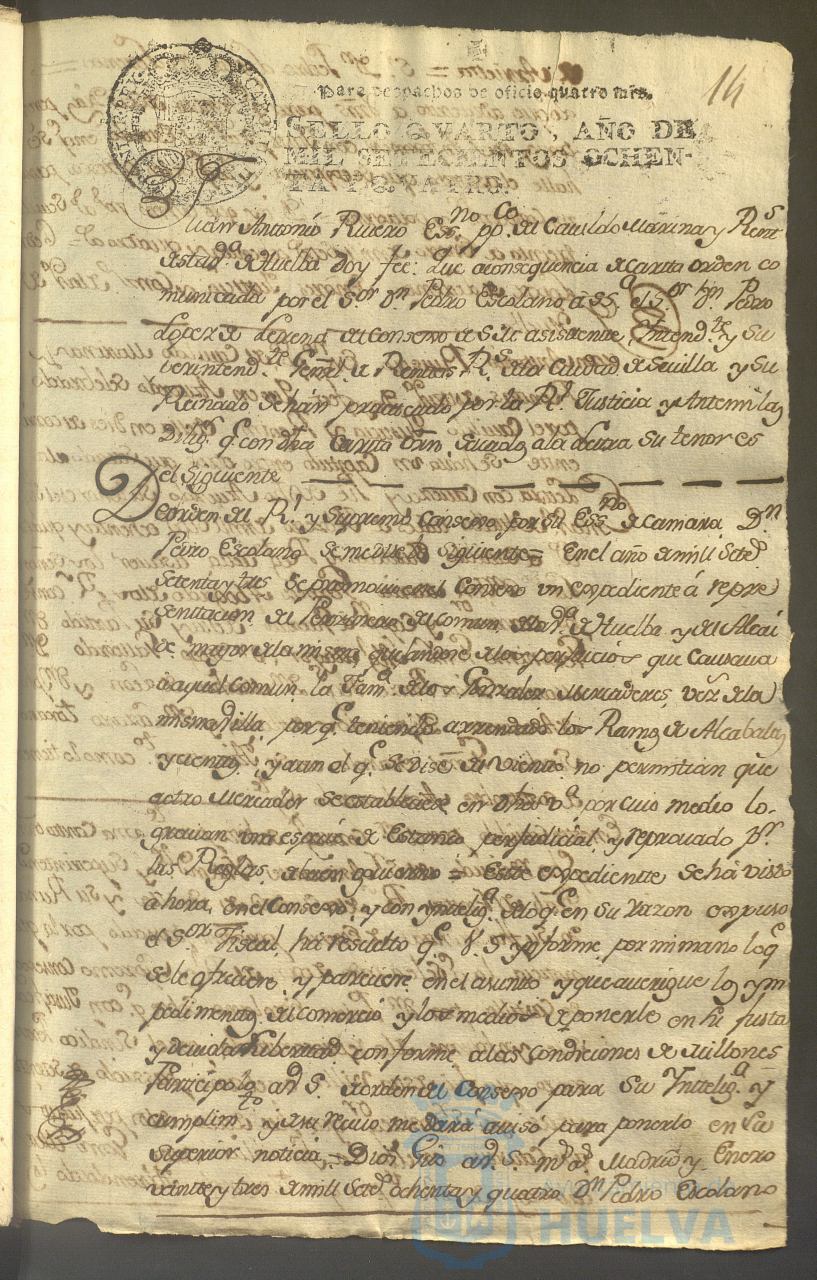 14
Para despachos de oficio quatro mrs.
SELLO QVARTO, AÑO DE
MIL SETECIENTOS OCHEN-
TA Y QVATRO.
Juan Antonio Rivero Ess.no pp.co del Cavildo Marina y Rent.s
de esta v.a de Huelba Doy fee: que a consequencia de Carta orden co
municada por el S.or D.n Pedro Escolano a el S.or D.n Pedro
Lopez de Lerena del Consejo de S.M. asistente, Intend.te y Su
perintend.te Genrl. de Rentas R.s de la Ciudad de Sevilla y su
Reinado se han practicado por la Rl. Justicia y Ante mi las
Dilig.s q.e con dha Carta orn. sacadas a la letra su tenor es
el siguiente
De orden del Rl. y Supremo Consejo por su Ess.no de Camara D.n
Pedro Escolano se me dise lo siguiente = En el año de mill Sete.s
Setenta y tres se promovio en el Consejo un expediente á repre
sentacion del Personero del comun de la v.a de Huelba y del Alcai
de mayor de la misma quejandose de los perjuicios que causava
a aquel comun la Fam.a de los Gonzalez Mercaderes, vez.s de la
misma villa por q.e teniendo arrendado los Ramos de Alcabalas
y cientos, y aun el q.e se dise del viento no permitian que
otro Mercader se estableciere en dha v.a por cuio medio lo-
gravan una especie de Estanco perjudicial y reprovado p.r
las Reglas de buen govierno = Este expediente se há visto
ahora en el Consejo, y con yntelig.a de lo q.e en su razon expuso
el S.or Fiscal, ha resuelto q.e V.S. ynforme por mi mano lo q.e
se le ofreciere y pareciere en el asunto y que averigue los ym
pedimentos del comercio y los medios de ponerle en su justa
y devida livertad conforme a las condiciones de Millones
Participolo a V.S. de orden del Consejo para su Yntelig.a y
cumplim.to y de su recivo me dará aviso para ponerlo en la
superior noticia = Dios gue a V.S. m.s a.s Madrid y Enero
veinte y tres de mill Sete.s ochenta y quatro D.n Pedro Escolano
HUELVA